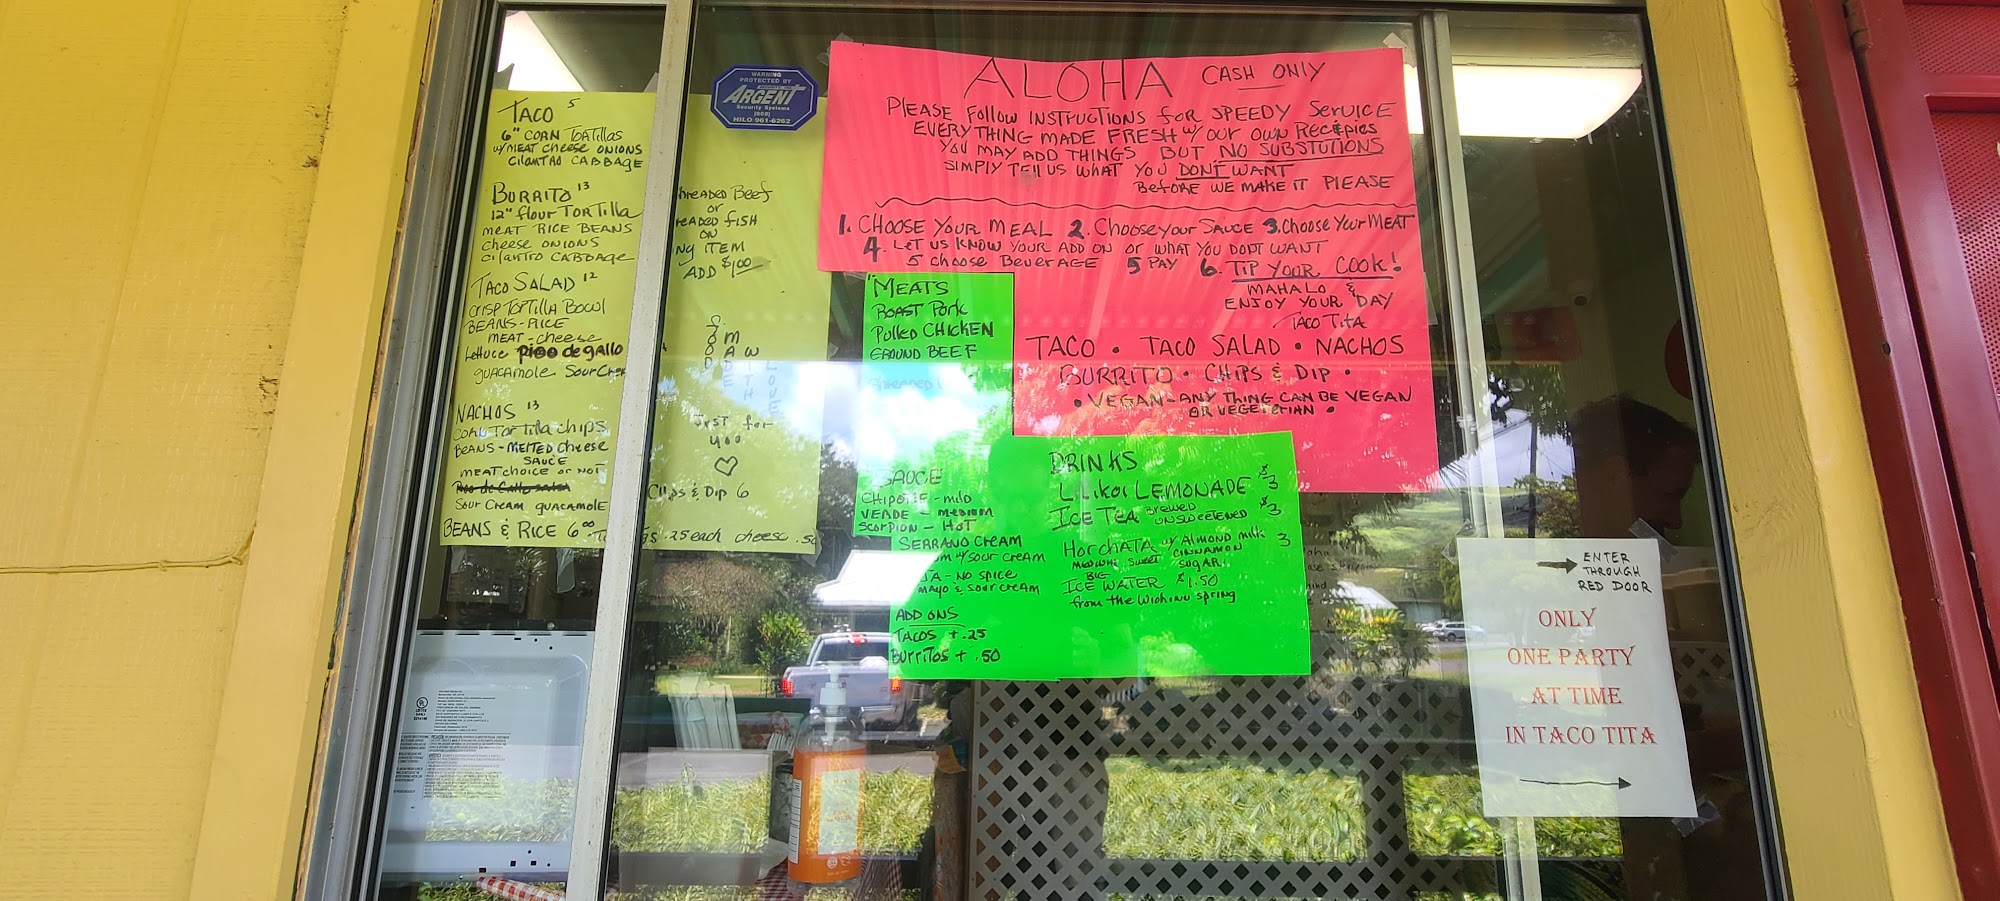 TACO 5
6" CORN TORTILLAS
W/MEAT CHEESE ONIONS
CILANTRO CABBAGE
BURRITO 13
12" FLOUR TORTILLA
MEAT RICE BEANS
CHEESE ONIONS
CILANTRO CABBAGE
TACO SALAD 12
CRISP TORTILLA BOWL
BEANS-RICE
MEAT-CHEESE
LETTUCE PICO de gallo
GUACAMOLE SOUR
NACHOS 13
CORN TORTILLA CHIPS
BEANS-MELTED CHEESE
SAUCE
MEAT CHOICE OR NOT
SOUR CREAM GUACAMOLE
BEANS & RICE 6.00
BEEF
OR
FISH
ON
ITEM
ADD $1.00
FOOD MADE WITH LOVE
JUST for
YOU
CHIPS & DIP 6
.25 each cheese .50
WARNING
PROTECTED BY
ARGENT
Security Systems
(808)
HILO 961-6262
ALOHA CASH ONLY
PLEASE FOLLOW INSTRUCTIONS FOR SPEEDY SERVICE
EVERYTHING MADE FRESH W/ OUR OWN RECEPIES
YOU MAY ADD THINGS BUT NO SUBSTUTIONS
SIMPLY TELL US WHAT YOU DONT WANT
BEFORE WE MAKE IT PLEASE
1. CHOOSE YOUR MEAL 2. Choose your SAUCE 3. Choose Your MEAT
4. LET US KNOW YOUR ADD ON OR WHAT YOU DONT WANT
5 choose BEVERAGE 5 PAY 6. TIP YOUR COOK!
MAHALO &
ENJOY YOUR DAY
TACO TITA
TACO • TACO SALAD • NACHOS
BURRITO • CHIPS & DIP •
• VEGAN - ANY THING CAN BE VEGAN
OR VEGETERIAN •
"MEATS
ROAST PORK
PULLED CHICKEN
GROUND BEEF
SAUCE
CHIPOTLE - MILD
VERDE - MEDIUM
SCORPION - HOT
SERRANO CREAM
W/SOUR CREAM
- NO SPICE
MAYO & SOUR CREAM
ADD ONS
TACOS + .25
BURRITOS + .50
DRINKS
LILIKOI LEMONADE $3
ICE TEA BREWED UNSWEETENED $3
HORCHATA W/ ALMOND MILK 3
MEDIUM SWEET CINNAMON
SUGAR
BIG
ICE WATER $1.50
from the spring
ENTER
THROUGH
RED DOOR
ONLY
ONE PARTY
AT TIME
IN TACO TITA